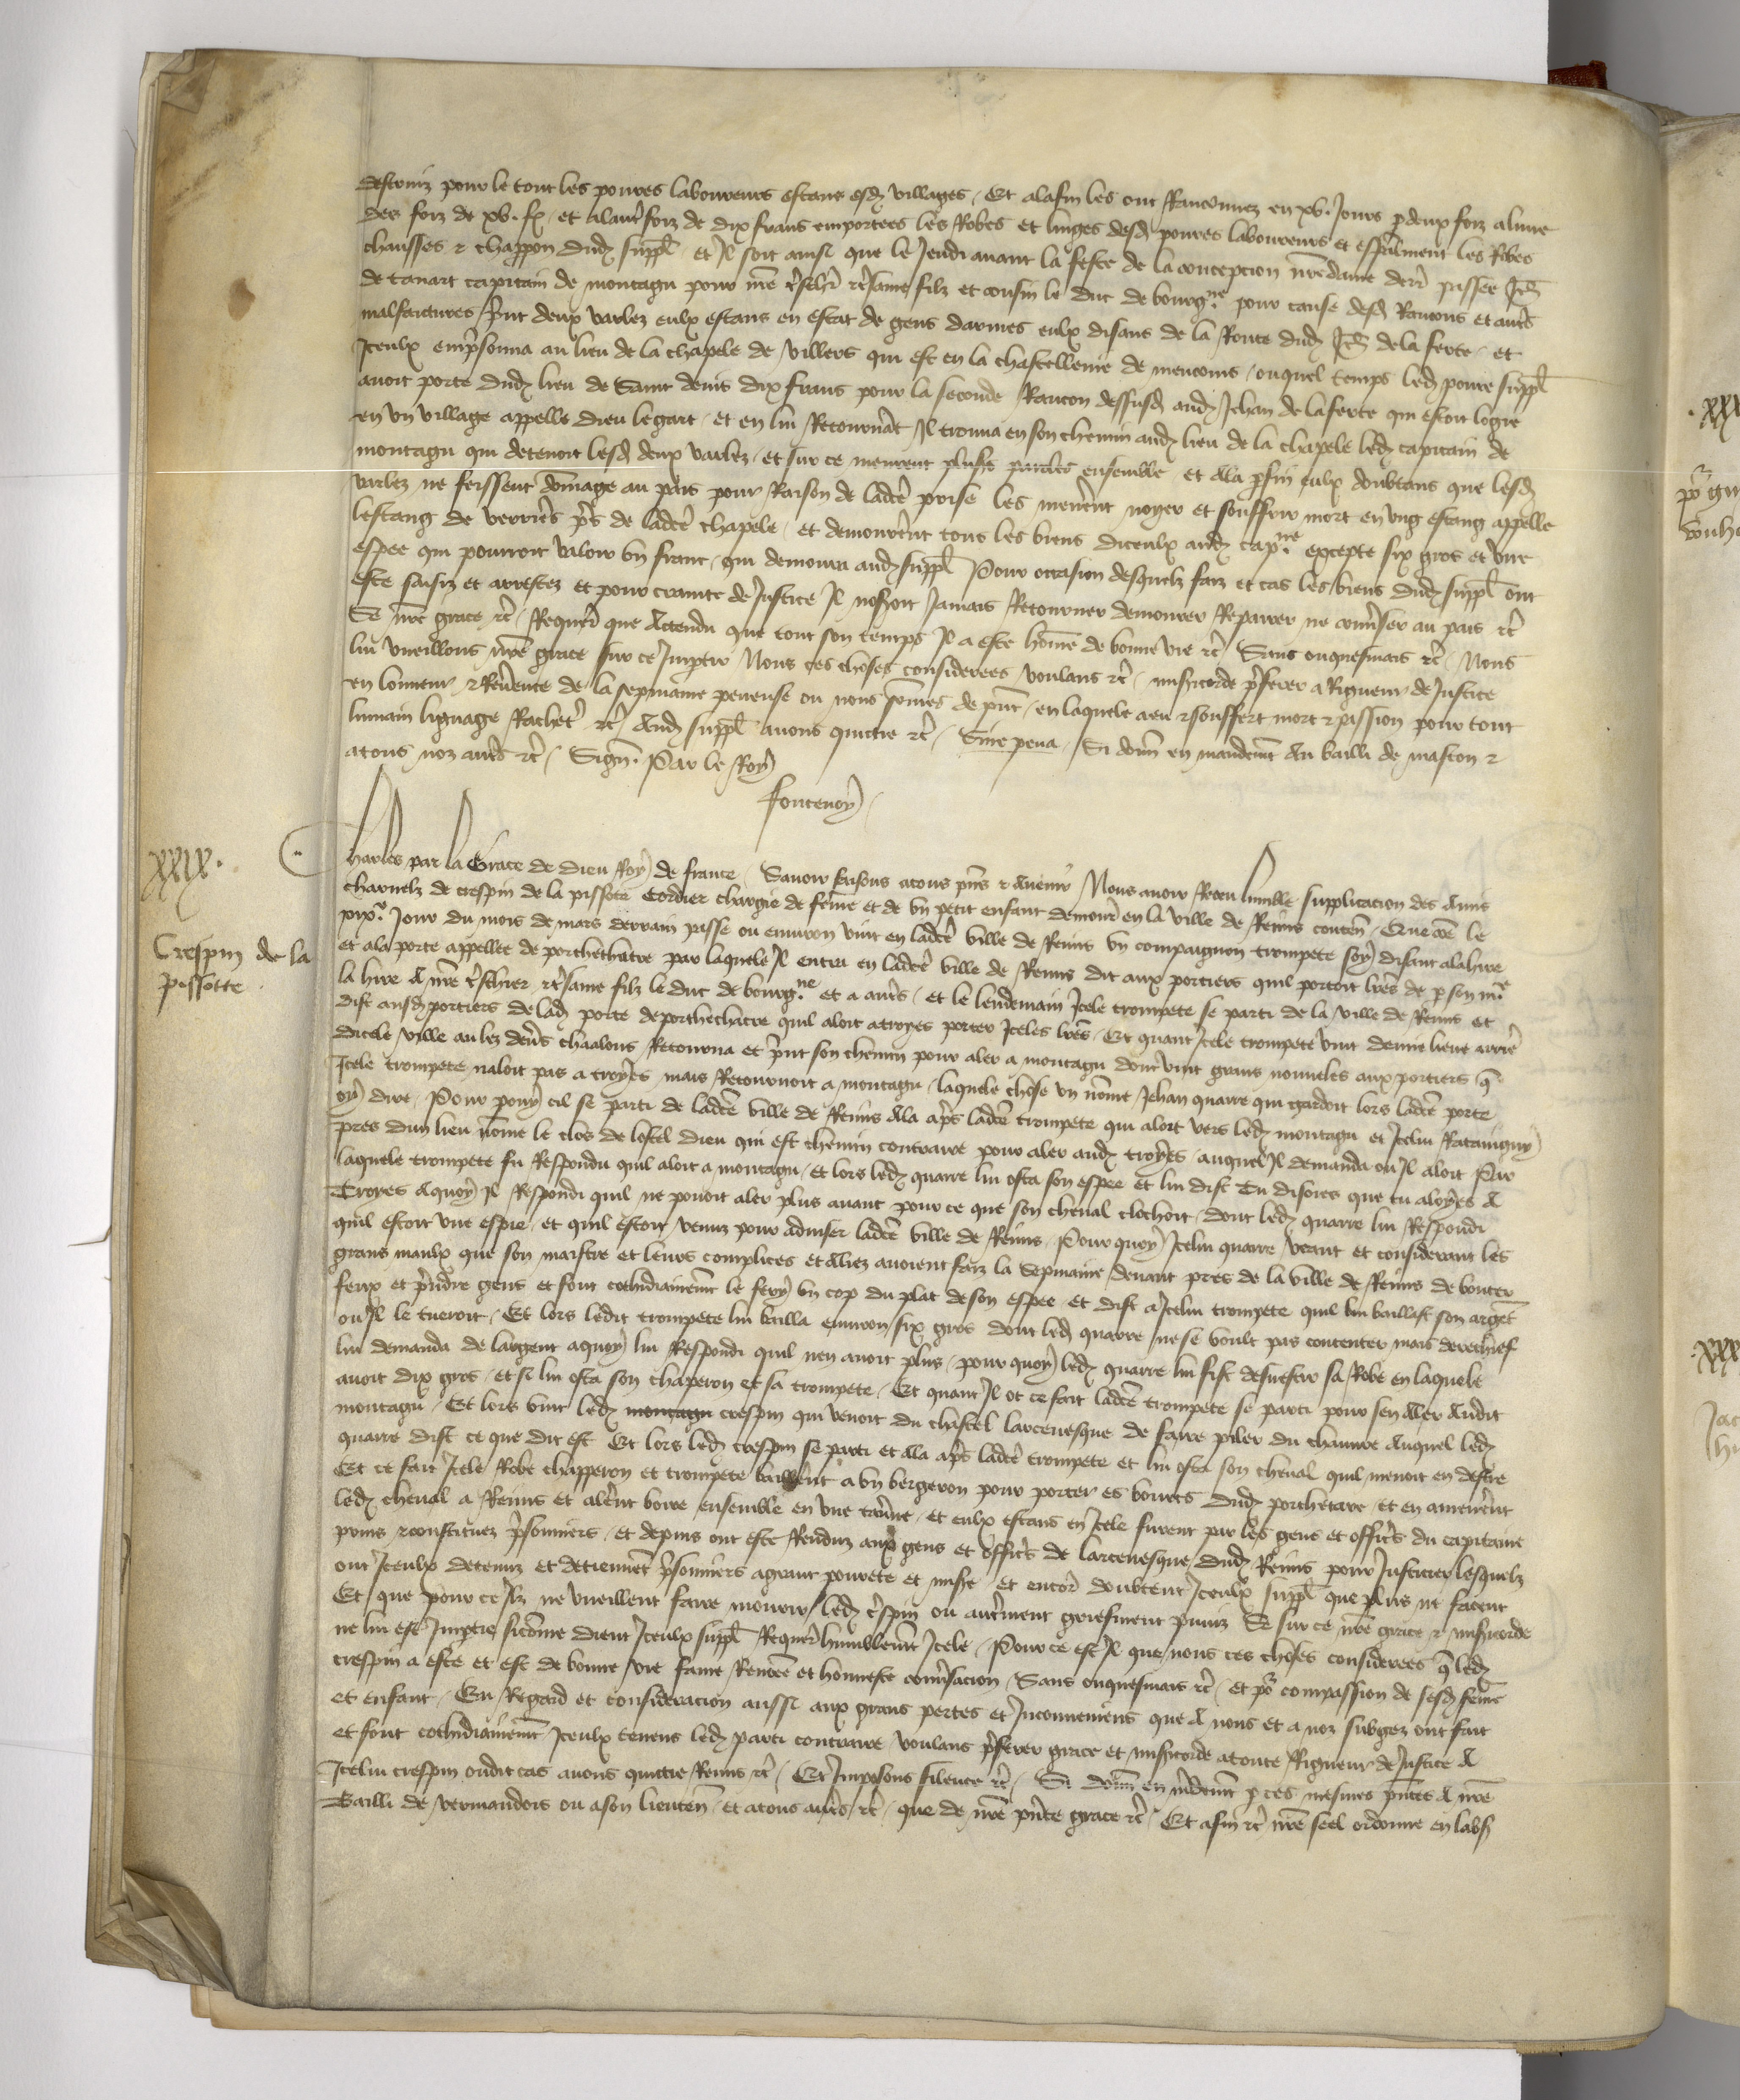 destruiz pour le tout les povres laboureurs estans esd. villages, Et alafin les ont Ranconnez en xv. Jours p deux foiz alune
des foiz de xv. fs. et alautre foiz de dix frans emportees les Robes et linges desd. povres laboureurs et esp̃alment les Robes
chausses ⁊ chappon dud. suppl̃ et Il soit ainsi que le Jeudi avant la feste de la concepcion nr̃e dame derr̃ passee Jeħ
de tanart capitain de montagu pour nr̃e tr̃schr̃ et tr̃same filz et cousin le duc de bourg.ne pour cause desd. Rancons et autr̃s
malfaictures print deux varlez eulx estans en estat de gens darmes eulx disans de la Route dud. Jeħ de la ferte, et
Iceulx emprisonna au lieu de la chapele de villers qui est en la chastellenie de mencoins, ouquel temps led. povre suppl̃
avoit porte dud. lieu de Saint denis dix frans pour la seconde Rancon dessusd. aud. Jehan de laferte qui estoit logie
en un village appelle dieu legart, et en lui Retournãt Il trouva en son chemin aud. lieu de la chapele led. capitain de
montagu qui detenoit lesd. deux varlez, et sur ce meurent plus̃rs paroles ensemble et ala parfin eulx doubtans que lesd.
varlez ne feissent dõmage au pais pour Raison de ladc̃e prise les menerent noyer et souffrir mort en ung estang appelle
lestang de verrieres pr̃s de ladc̃e chapele, et demourerent tous les biens diceulx aud. cap.ne excepte six gros et une
espee qui pourroit valoir un franc, qui demoura aud. suppl̃ Pour occasion desquelz faiz et cas les biens dud. suppl̃ ont
este saisiz et arrestez et pour crainte de Justice Il noseroit Jamais Retourner demourer Repairer ne conv̾ser au pais etc̃
Se nr̃e grace etc̃, Requer̃ que Attendu que tout son temps Il a este hom̃e de bonne vie etc̃ Sans onquesmais etc̃ Nous
lui vueillons nr̃e grace sur ce Impartir Nous ces choses considerees voulans etc̃, misericorde preferer a Rigueur de Justice
en lonneur ⁊ Reverence de la sepmaine peneuse ou nous sõmes de pñt, en laquele a eu ⁊ souffert mort ⁊ passion pour tout
humain lignage Racheter etc̃ Aud. suppl̃ avons quictie etc̃, Sine pena, Si donñ en mandemt̃ Au bailli de mascon ⁊
atous noz autr̃s etc̃, Signe. Par le Roy
fontenoy
XXIX.
Crespin de la
pissotte
Charles par la Grace de dieu Roy de france, Savoir faisons atous pñs ⁊ Avenir Nous avoir Receu lumble supplicacion des Amis
charnelz de crespin de la pissote Cordier chargie de fem̃e et de un petit enfant demourant en la ville de Reins conten̄, Que cõe le
xix.e Jour du mois de mars derrain passe ou environ vint en ladc̃e ville de Reins un compaignon trompete soy disant alahire
et ala porte appellee de porthechatre par laquele Il entra en ladc̃e ville de Reins dit aux portiers quil portoit lr̃es de p son me̾
la hire A nr̃e tr̃schier et tr̃same filz le duc de bourg.ne et a autr̃s, et le lendemain Icele trompete se parti de la ville de Reins et
dist ausd. portiers de lad. porte deporthechatre quil aloit atroyes porter Iceles lr̃es, Et quant Icele trompete vint demie lieue arriere
dicele ville au lez devers chaalons Retourna et print son chemin pour aler a montagu dont vint grans nouveles aux portiers q̃
Icele trompete naloit pas a troyes mais Retournoit a montagu, laquele chose un nõme Jehan quarre qui gardoit lors ladc̃e porte
oy dire, Pour quoy cil se parti de ladc̃e ville de Reins Ala apr̃s ladc̃e trompete qui aloit vers led. montagu et Icelui Rataigny
pres dun lieu nõme le clos de lostel dieu qui est chemin contraire pour aler aud. troyes, auquel Il demanda ou Il aloit Par
laquele trompete fu Respondu quil aloit a montagu, et lors led. quarre lui osta son espee et lui dist Tu disoies que tu aloyes A
Troyes Aquoy Il Respondi quil ne povoit aler plus avant pour ce que son cheval clochoit, dont led. quarre lui Respondi
quil estoit une espie, et quil estoit venuz pour adviser ladc̃e ville de Reins, Pour quoy Icelui quarre veant et considerant les
grans maulx que son maistre et leurs complices et Aliez avoient faiz la sepmaine devant pres de la ville de Reins de bouter
feux et prendre gens et font cothidiainement le fery un cop du plat de son espee, et dist a Icelui trompete quil lui baillast son argẽt
ou Il le tueroit, Et lors ledit trompete lui bailla environ six gros dont led. quarre ne se voult pas contenter mais derechief
lui demanda de largent aquoy lui Respondi quil nen avoit plus, pour quoy led. quarre lui fist desvestir sa Robe en laquele
avoit dix gros, et si lui osta son chaperon et sa trompete, Et quant Il ot ce fait ladc̃e trompete se parti pour sen Aler Audit
montagu, Et lors vint led. montagu crespin qui venoit du chastel larcevesque de faire piler du chanvre Auquel led.
quarre dist ce que dit est Et lors led. crespin se parti et Ala apr̃s ladc̃e trompete et lui osta son cheval quil menoit en destre
Et ce fait Icele Robe chapperon et trompete baillerent a un bergeron pour porter es bours dud. porthetare, et en amenerent
led. cheval a Reins et alerent boire ensemble en une taverne, et eulx estans en Icele furent par les gens et officrs du capitaine
prins ⁊ constituez prisonniers, et depuis ont este Renduz aux gens et officrs de larcevesque dud. Reins pour Justicier lesquelz
ont Iceulx detenuz et detiennẽt prisonniers agrant povrete et misere, et encores doubtent Iceulx suppl̃ que plus ne facent
Et que pour ce Ilz ne vueillent faire mourir led. crespin ou autrement griefment puniz Se sur ce nr̃e grace ⁊ misericorde
ne lui est Impartie sicõme dient Iceulx suppl̃ Requer̃ humblemt̃ Icele, Pour ce est Il que nous ces choses considerees q̃ led.
crespin a este et est de bonne vie fame Renõee et honneste conv̾sacion, Sans onquesmais etc̃, et po̾ compassion de sesd. fem̃e
et enfant, Eu Regard et consideracion aussi aux grans pertes et Inconveniens que A nous et a noz subgez ont fait
et font cothidiainemt̃ Iceulx tenens led. parti contraire voulans preferer grace et misericorde atoute Rigueur de Justice A
Icelui crespin oudit cas avons quictie Remis etc̃, Et Imposons silence etc̃, Si donñ en mãdemt̃ p ces mesmes pñtes A nr̃e
Bailli de vermandois ou ason lieuten̄, et atous autr̃s etc̃, que de nr̃e pñte grace etc̃, Et afin etc̃ nr̃e seel ordonne en labs̄